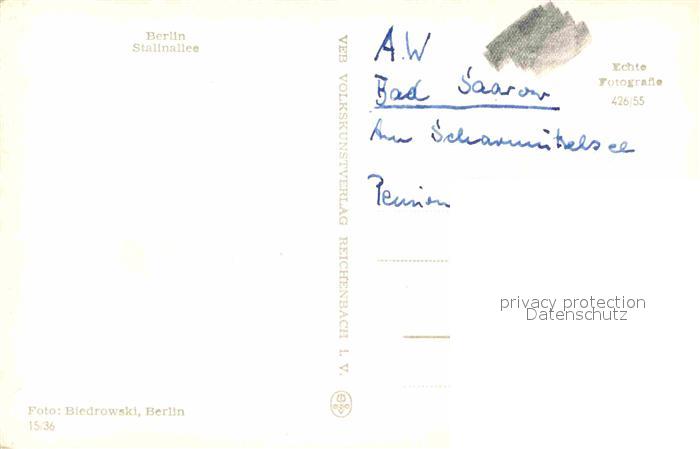 Berlin
Stalinallee
VEB VOLKSKUNSTVERLAG REICHENBACH I. V.
Foto: Biedrowski, Berlin
15/36
A.W
Bad Saarow
Am Scharmützelsee
Pension
Echte
Fotografie
426/55
privacy protection
Datenschutz